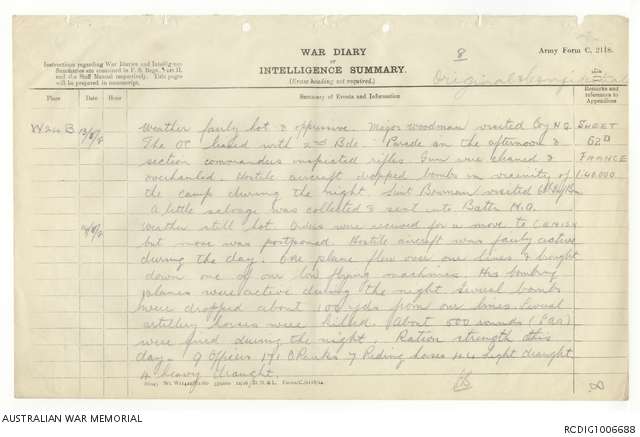 WAR DIARY
or
INTELLIGENCE SUMMARY.
(Erase heading not required.)
8
Army Form C. 2118.
Original & Confidential
Instructions regarding War Diaries and Intelligence
Summaries are contained in F. S. Regs., Part II.
and the Staff Manual respectively. Title pages
will be prepared in manuscript.
Place Date Hour Summary of Events and Information Remarks and references to Appendices
W24 B 13/8/18 Weather fairly hot & oppressive. Major Woodman visited Coy H.Q. SHEET
The OC liaised with 2nd Bde. Parade in the afternoon & 62D
section commanders inspected rifles. Guns were cleaned & FRANCE
overhauled. Hostile aircraft dropped bombs in vicinity of 1/40,000
the camp during the night. Lieut Bowman visited
A little salvage was collected & sent into Battn H.Q.
14/8/18 Weather still hot. Orders were issued for a move to
but move was postponed. Hostile aircraft was fairly active
during the day. One plane flew over our lines & brought
down one of our low flying machines. His bombing
planes were active during the night several bombs
were dropped about 100 yds from our lines. Several
artillery horses were killed. About 500 rounds (PAA)
were fired during the night. Ration strength this
day. 9 Officers 171 O Ranks 7 Riding horses 44 light draught
4 heavy draught.
AUSTRALIAN WAR MEMORIAL
RCDIG1006688